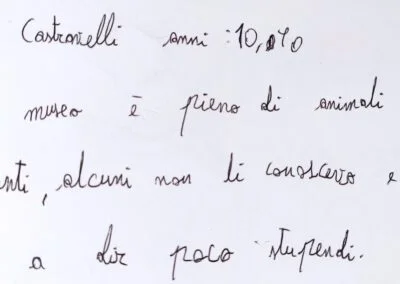 Castronelli anni : 10,
museo è pieno di animali
nti, alcuni non li conoscevo e
a dir poco stupendi.